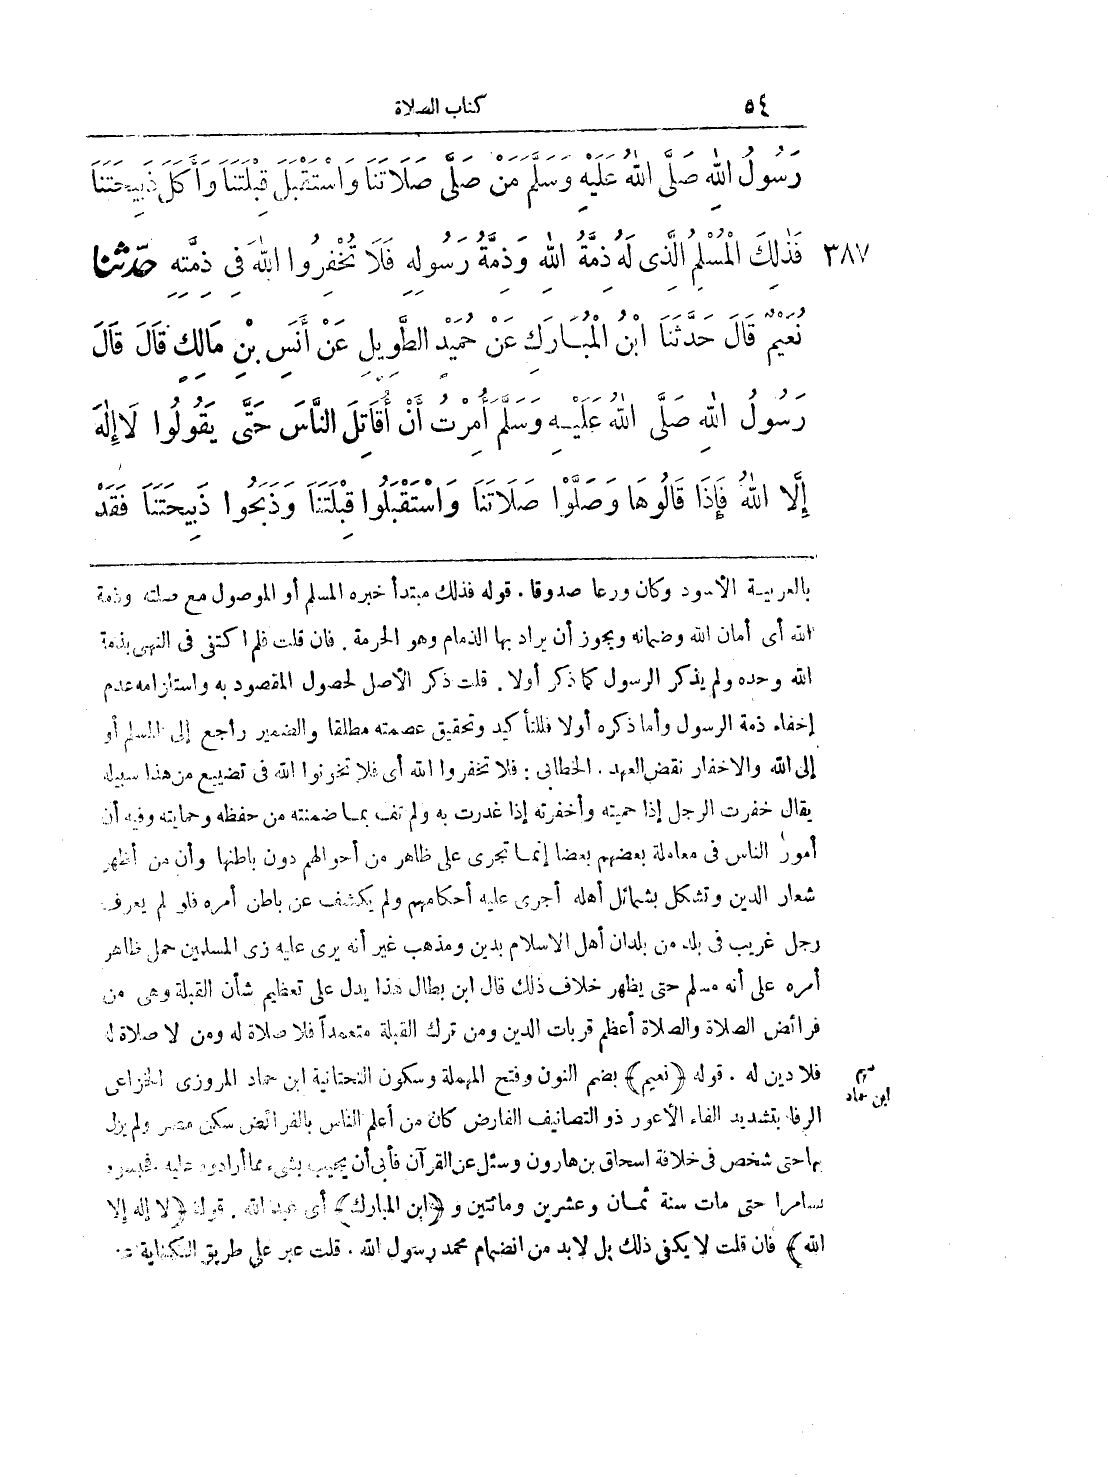 ٥٤ كتاب الصلاة
رَسُولُ اللهِ صَلَّى اللهُ عَلَيْهِ وَسَلَّمَ مَنْ صَلَّى صَلَاتَنَا وَاسْتَقْبَلَ قِبْلَتَنَا وَأَكَلَ ذَبِيحَتَنَا
٣٨٧ فَذٰلِكَ الْمُسْلِمُ الَّذِى لَهُ ذِمَّةُ اللهِ وَذِمَّةُ رَسُولِهِ فَلَا تُخْفِرُوا اللهَ فِى ذِمَّتِهِ حَدّثنا
نُعَيْمٌ قَالَ حَدَّثَنَا ابْنُ الْمُبَارَكِ عَنْ حُمَيْدٍ الطَّوِيلِ عَنْ أَنَسِ بْنِ مَالِكٍ قَالَ قَالَ
رَسُولُ اللهِ صَلَّى اللهُ عَلَيْهِ وَسَلَّمَ أُمِرْتُ أَنْ أُقَاتِلَ النَّاسَ حَتَّى يَقُولُوا لَا إِلٰهَ
إِلَّا اللهُ فَإِذَا قَالُوهَا وَصَلَّوْا صَلَاتَنَا وَاسْتَقْبَلُوا قِبْلَتَنَا وَذَبَحُوا ذَبِيحَتَنَا فَقَدْ
بالعربية الأسود وكان ورعا صدوقا . قوله فذلك مبتدأ خبره المسلم أو الموصول مع صلته وذمة
الله أى أمان الله وضمانه ويجوز أن يراد بها الذمام وهو الحرمة . فان قلت فلم اكتفى فى النهى بذمة
الله وحده ولم يذكر الرسول كما ذكر أولا . قلت ذكر الأصل لحصول المقصود به واستلزامه عدم
إخفاء ذمة الرسول وأما ذكره أولا فللتأكيد وتحقيق عصمته مطلقا والضمير راجع إلى المسلم أو
إلى الله والاخفار نقض العهد . الخطابى : فلا تخفروا الله أى فلا تخونوا الله فى تضييع من هذا سبيله
يقال خفرت الرجل إذا حميته وأخفرته إذا غدرت به ولم تف بما ضمنته من حفظه وحمايته وفيه أن
أمور الناس فى معاملة بعضهم بعضا إنما تجرى على ظاهر من أحوالهم دون باطنها وأن من أظهر
شعار الدين وتشكل بشمائل أهله أجرى عليه أحكامهم ولم يكشف عن باطن أمره فلو لم يعرف
رجل غريب فى بلد من بلدان أهل الاسلام بدين ومذهب غير أنه يرى عليه زى المسلمين حمل ظاهر
أمره على أنه مسلم حتى يظهر خلاف ذلك قال ابن بطال هذا يدل على تعظيم شأن القبلة وهى من
فرائض الصلاة والصلاة أعظم قربات الدين ومن ترك القبلة متعمداً فلا صلاة له ومن لا صلاة له
فلا دين له . قوله ﴿نعيم﴾ بضم النون وفتح المهملة وسكون التحتانية ابن حماد المروزى الخزاعى
نعيم
ابن حماد
الرفا بتشديد الفاء الأعور ذو التصانيف الفارض كان من أعلم الناس بالفرائض سكن مصر ولم يزل
بها حتى شخص فى خلافة اسحاق بن هارون وسئل عن القرآن فأبى أن يجيب بشىء مما أرادوه عليه فحبسوه
بسامرا حتى مات سنة ثمان وعشرين ومائتين و ﴿ابن المبارك﴾ أى عبد الله . قوله ﴿لا إله إلا
الله﴾ فان قلت لا يكفى ذلك بل لابد من انضمام محمد رسول الله . قلت عبر على طريق الكناية عن